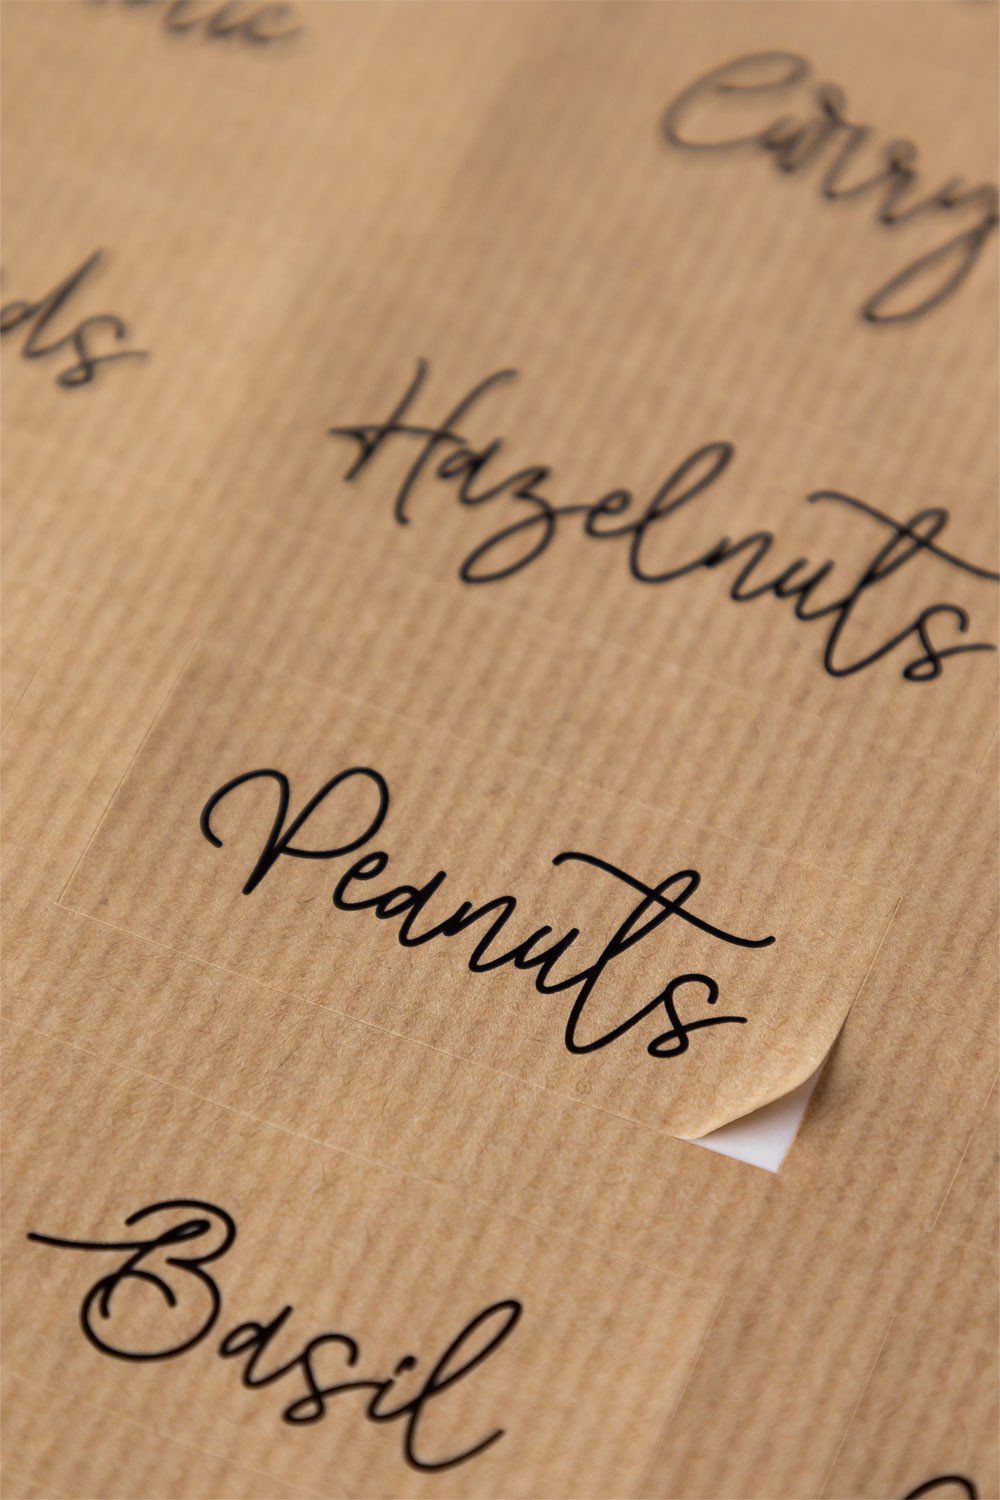 Curry
Hazelnuts
Peanuts
Basil